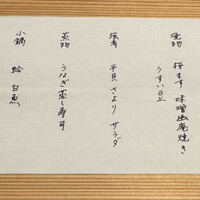 焼物
桜ます 味噌幽庵焼き
うすい豆
強肴
平貝 さより サラダ
蒸物
うなぎ蒸し寿司
小鍋
蛤 白魚